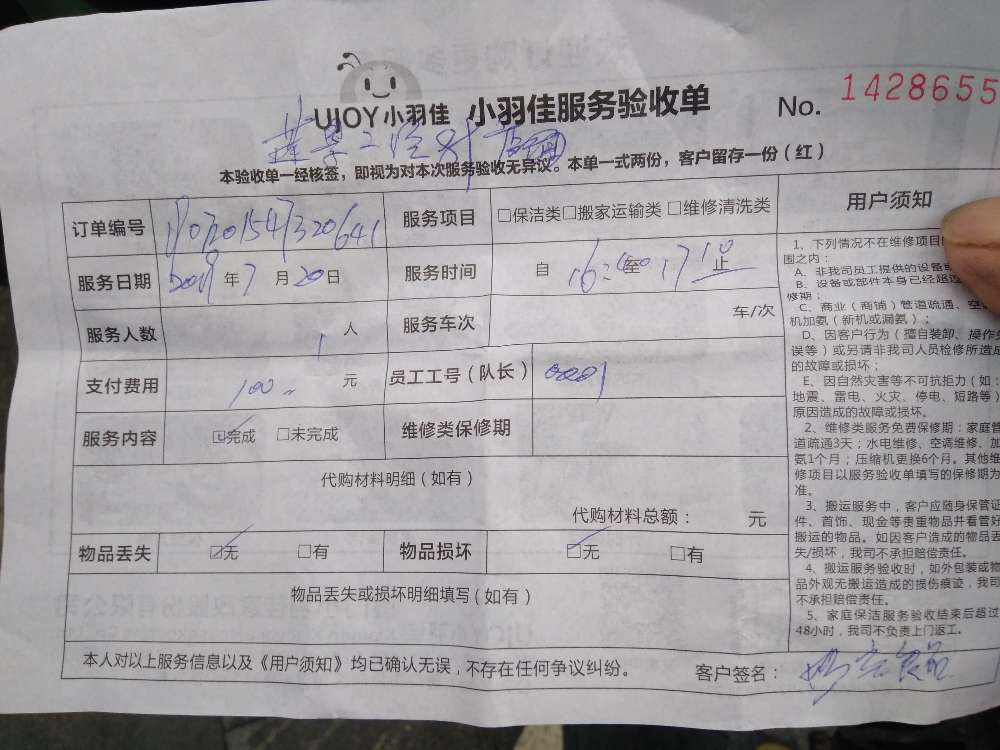 UJOY小羽佳 小羽佳服务验收单 No. 1428655
本验收单一经核签，即视为对本次服务验收无异议。本单一式两份，客户留存一份（红）
订单编号 服务项目 □保洁类□搬家运输类□维修清洗类
服务日期 2019年7月20日 服务时间 自 16:40 至 17 10 止
服务人数 1 人 服务车次 车/次
支付费用 100 元 员工工号（队长） 0001
服务内容 ☑完成 □未完成 维修类保修期
代购材料明细（如有）
代购材料总额： 元
物品丢失 ☑无 □有 物品损坏 ☑无 □有
物品丢失或损坏明细填写（如有）
本人对以上服务信息以及《用户须知》均已确认无误，不存在任何争议纠纷。 客户签名：
用户须知
1、下列情况不在维修项目
围之内：
A、非我司员工提供的设备或
B、设备或部件本身已经超过
修期；
C、商业（商铺）管道疏通、空
机加氨（新机或漏氨）；
D、因客户行为（擅自装卸、操作失
误等）或另请非我司人员检修所造成
的故障或损坏；
E、因自然灾害等不可抗拒力（如：
地震、雷电、火灾、停电、短路等）
原因造成的故障或损坏。
2、维修类服务免费保修期：家庭管
道疏通3天；水电维修、空调维修、加
氨1个月；压缩机更换6个月。其他维
修项目以服务验收单填写的保修期为
准。
3、搬运服务中，客户应随身保管证
件、首饰、现金等贵重物品并看管好
搬运的物品。如因客户造成的物品丢
失/损坏，我司不承担赔偿责任。
4、搬运服务验收时，如外包装或物
品外观无搬运造成的损伤痕迹，我司
不承担赔偿责任。
5、家庭保洁服务验收结束后超过
48小时，我司不负责上门返工。